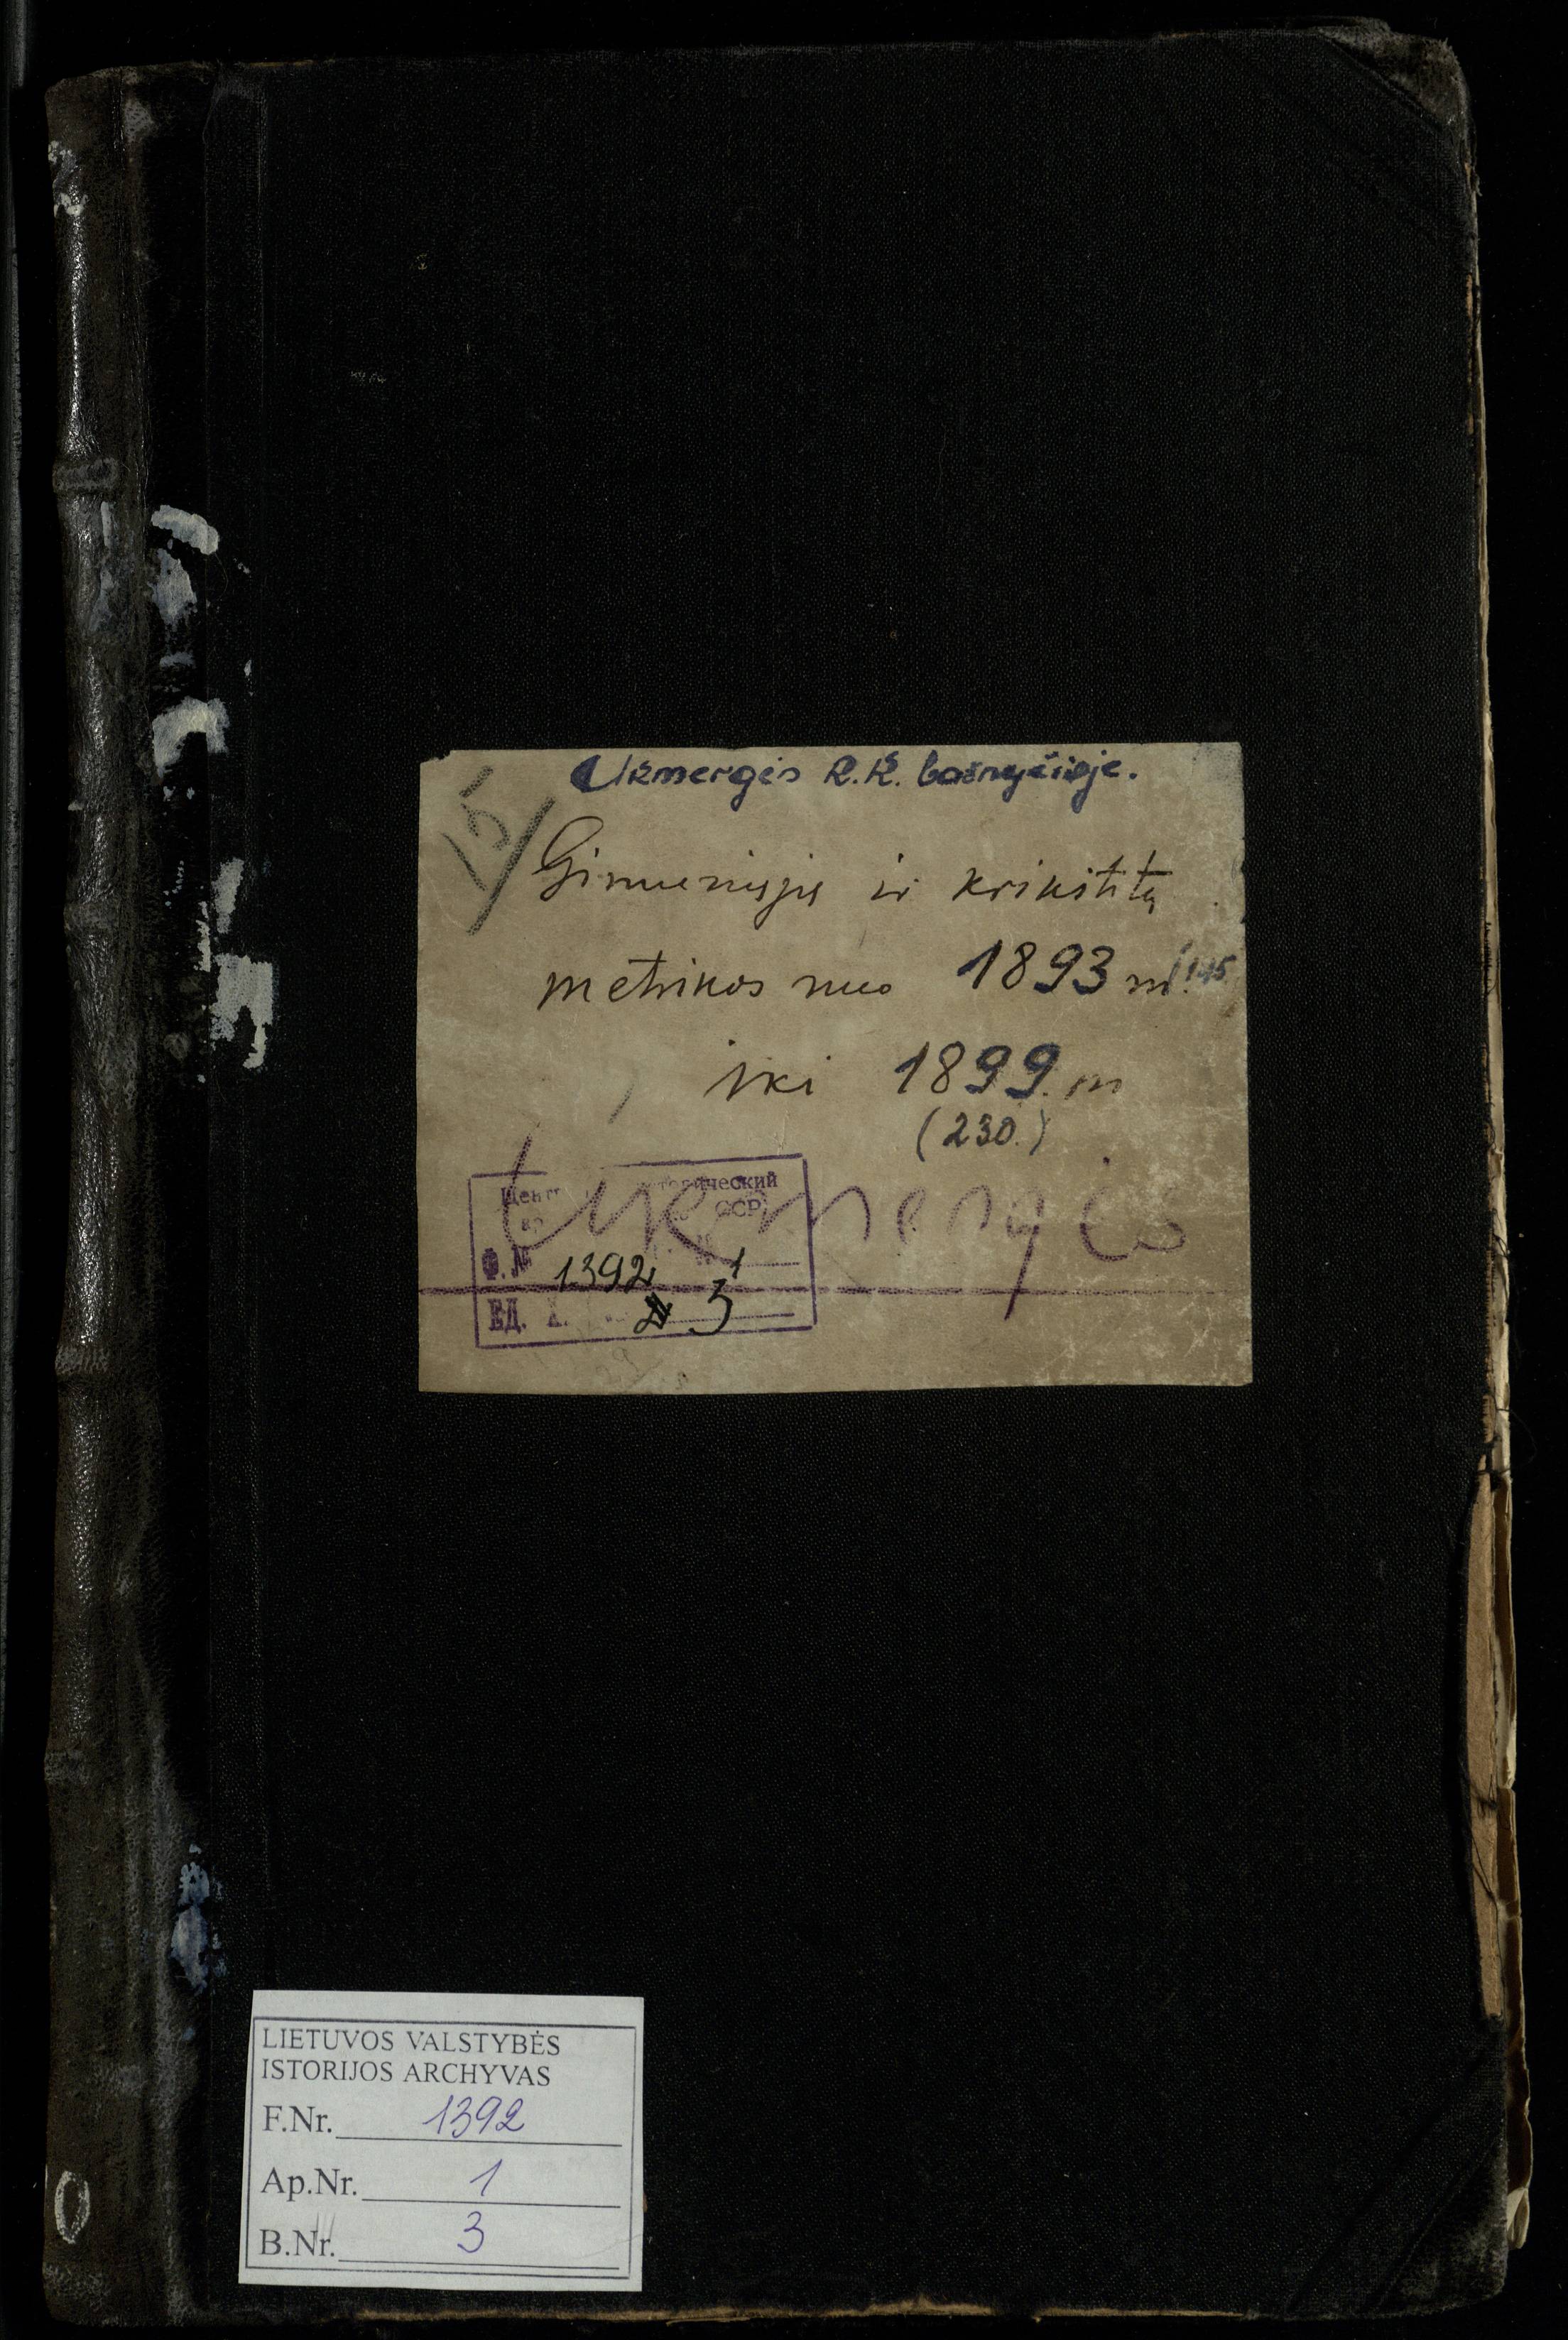 Ukmergės R.K. bažnyčioje.
15
Gimusiųjų ir krikštitų
metrikos nuo 1893 m.
iki 1899. m
(230.)
Ukmergės
ССР
Ф. № 1392 1
ЕД. 3
LIETUVOS VALSTYBĖS
ISTORIJOS ARCHYVAS
F.Nr. 1392
Ap.Nr. 1
B.Nr. 3